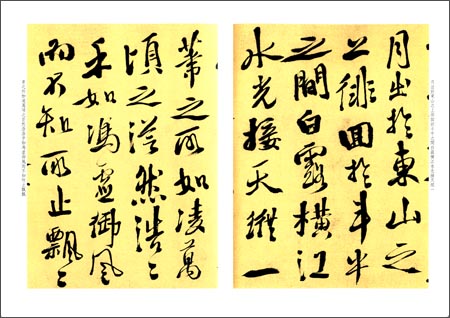 月出於東山之
上徘回於斗牛
之間白露橫江
水光接天縱一
葦之所如凌萬
頃之茫然浩〻
乎如馮虛御風
而不知所止飄〻